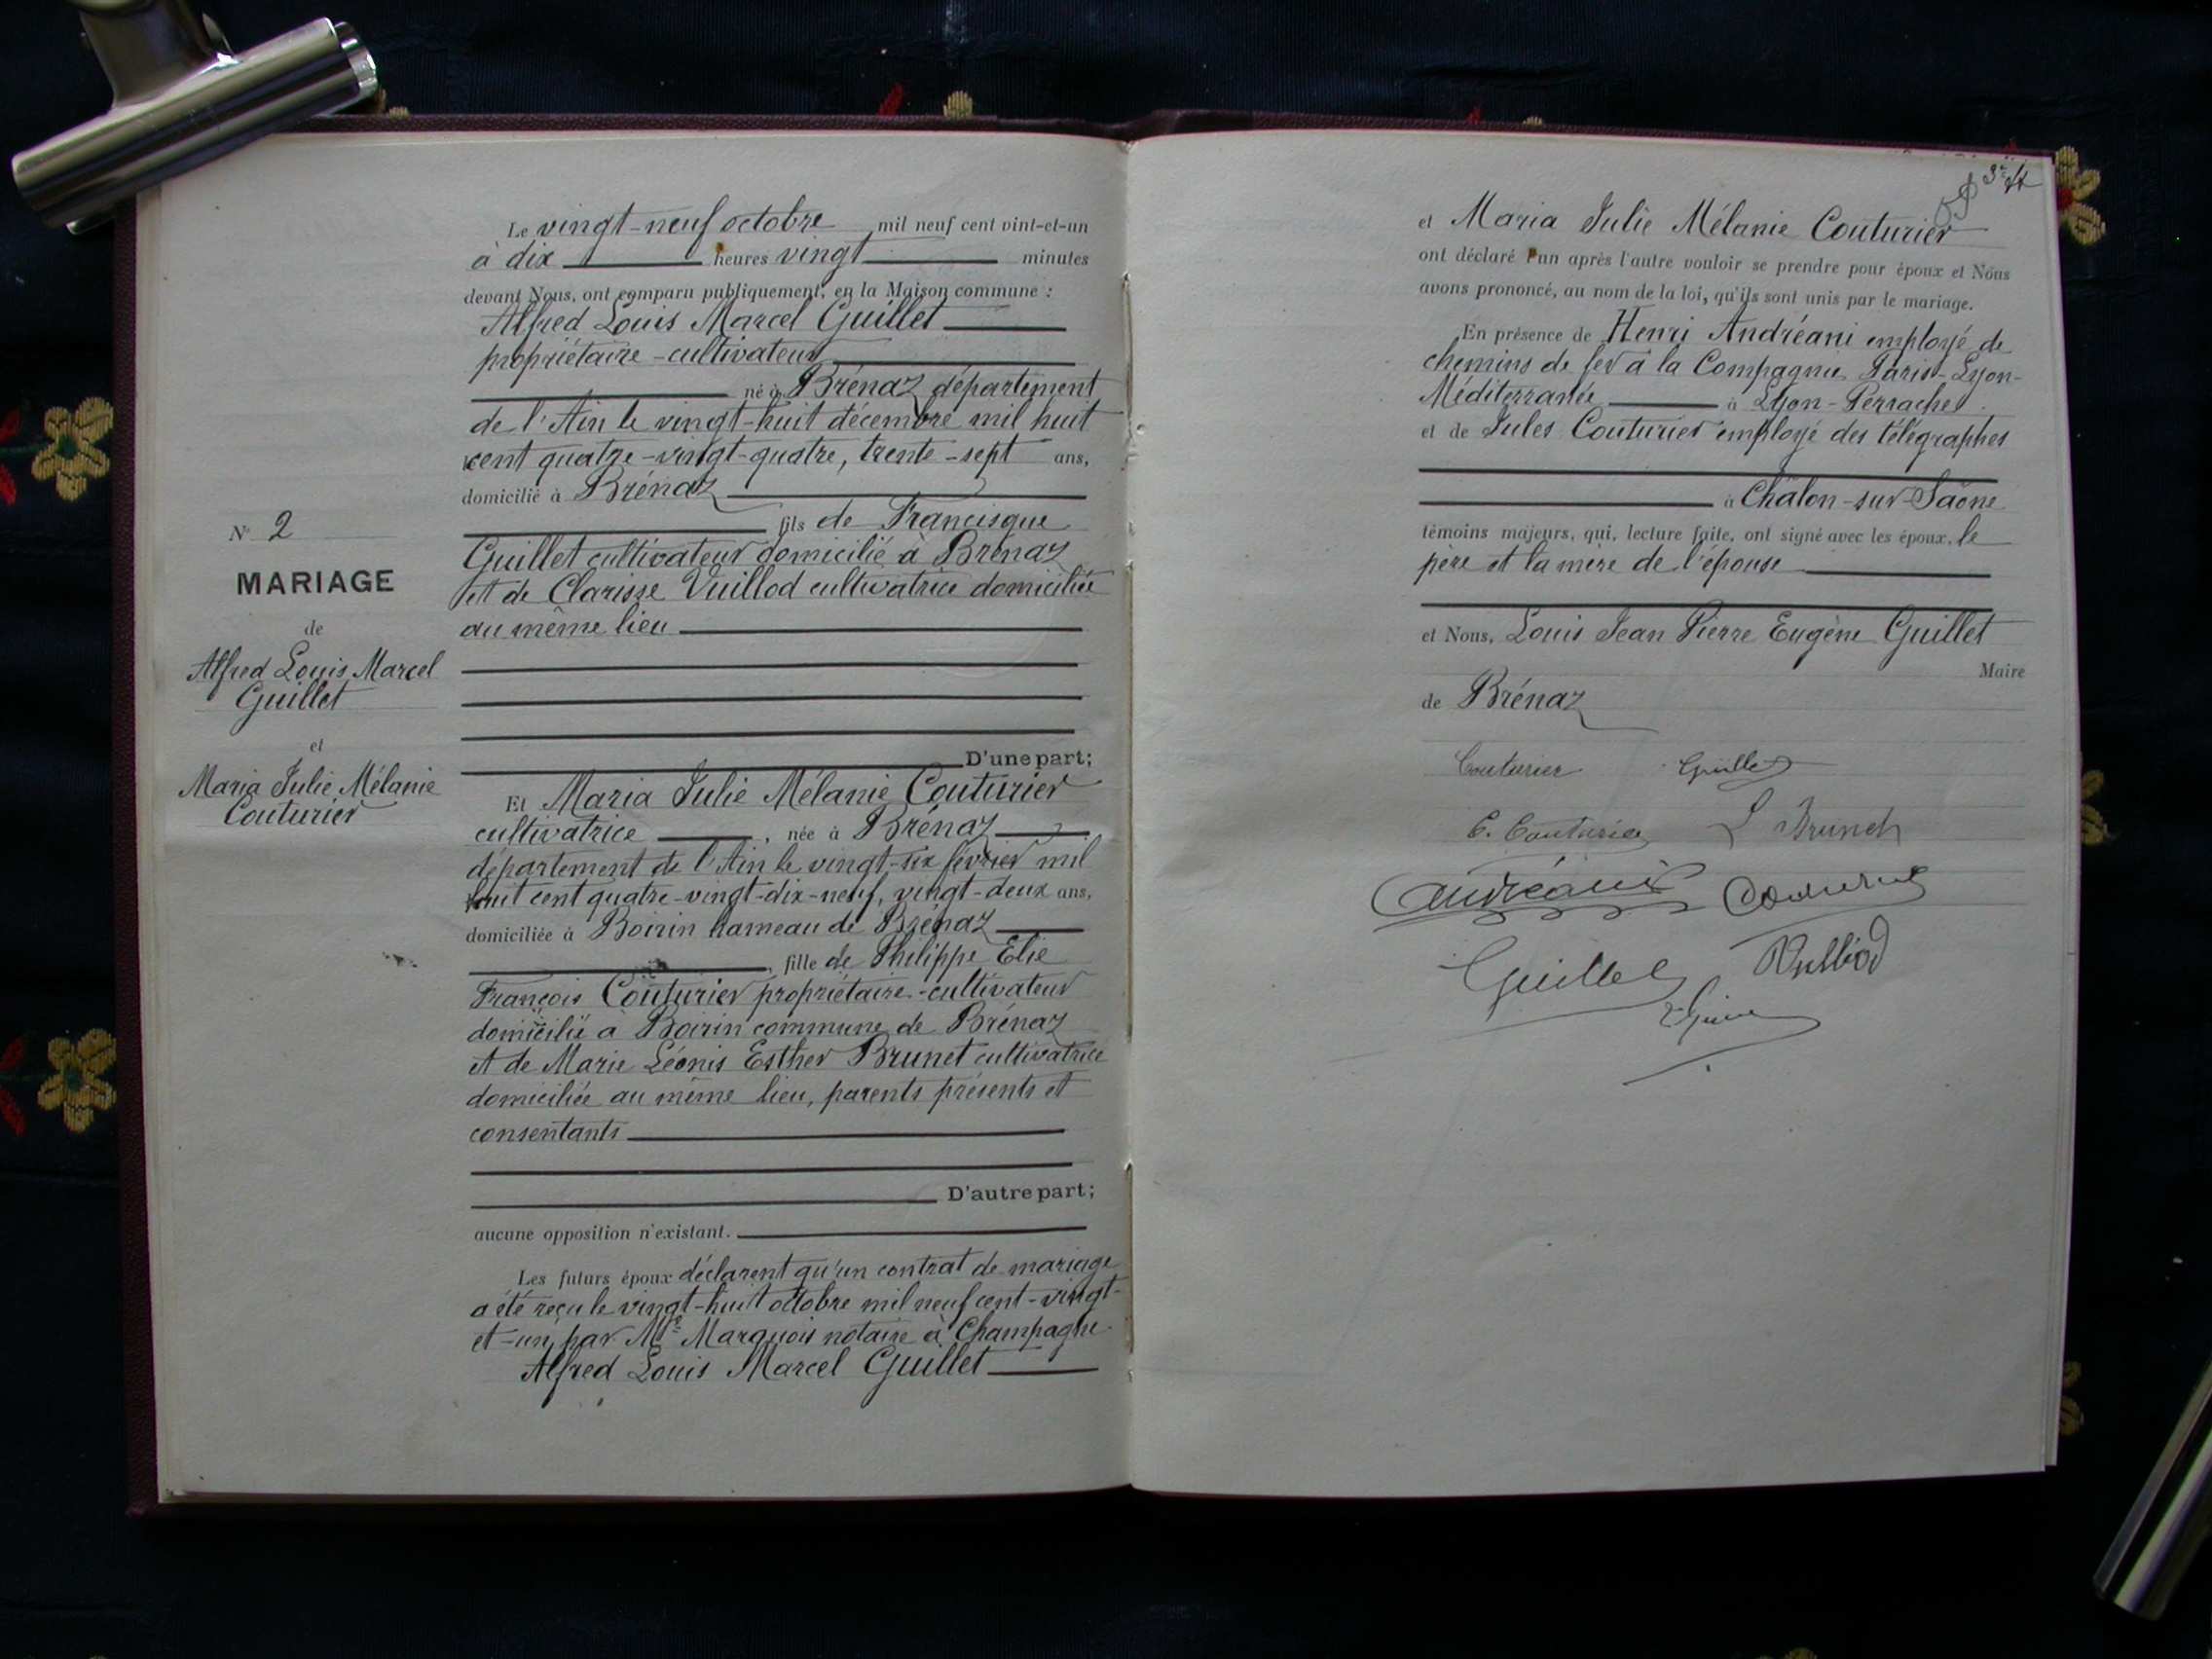 N° 2
MARIAGE
de
Alfred Louis Marcel
Guillet
et
Maria Julie Mélanie
Couturier
Le vingt-neuf octobre mil neuf cent vint-et-un
à dix heures vingt minutes
devant Nous, ont comparu publiquement, en la Maison commune :
Alfred Louis Marcel Guillet
propriétaire-cultivateur
né à Brénaz département
de l'Ain le vingt-huit décembre mil huit
cent quatre-vingt-quatre, trente-sept ans,
domicilié à Brénaz
fils de Francisque
Guillet cultivateur domicilié à Brénaz
et de Clarisse Vuillod cultivatrice domiciliée
au même lieu
D'une part;
Et Maria Julie Mélanie Couturier
cultivatrice, née à Brénaz
département de l'Ain le vingt-six février mil
huit cent quatre-vingt-dix-neuf, vingt-deux ans,
domiciliée à Boirin hameau de Brénaz
, fille de Philippe Elie
François Couturier propriétaire-cultivateur
domicilié à Boirin commune de Brénaz
et de Marie Léonis Esther Brunet cultivatrice
domiciliée au même lieu, parents présents et
consentants
D'autre part;
aucune opposition n'existant.
Les futurs époux déclarent qu'un contrat de mariage
a été reçu le vingt-huit octobre mil neuf cent-vingt-
et-un par Me Marquois notaire à Champagne
Alfred Louis Marcel Guillet
et Maria Julie Mélanie Couturier
ont déclaré l'un après l'autre vouloir se prendre pour époux et Nous
avons prononcé, au nom de la loi, qu'ils sont unis par le mariage.
En présence de Henri Andréani employé de
chemins de fer à la Compagnie Paris-Lyon-
Méditerranée à Lyon-Perrache
et de Jules Couturier employé des télégraphes
à Châlon-sur-Saône
témoins majeurs, qui, lecture faite, ont signé avec les époux, le
père et la mère de l'épouse
et Nous, Louis Jean Pierre Eugène Guillet
Maire
de Brénaz
Couturier Guillet
E. Couturier L Brunet
Andréani Couturier
Guillet Vulliod